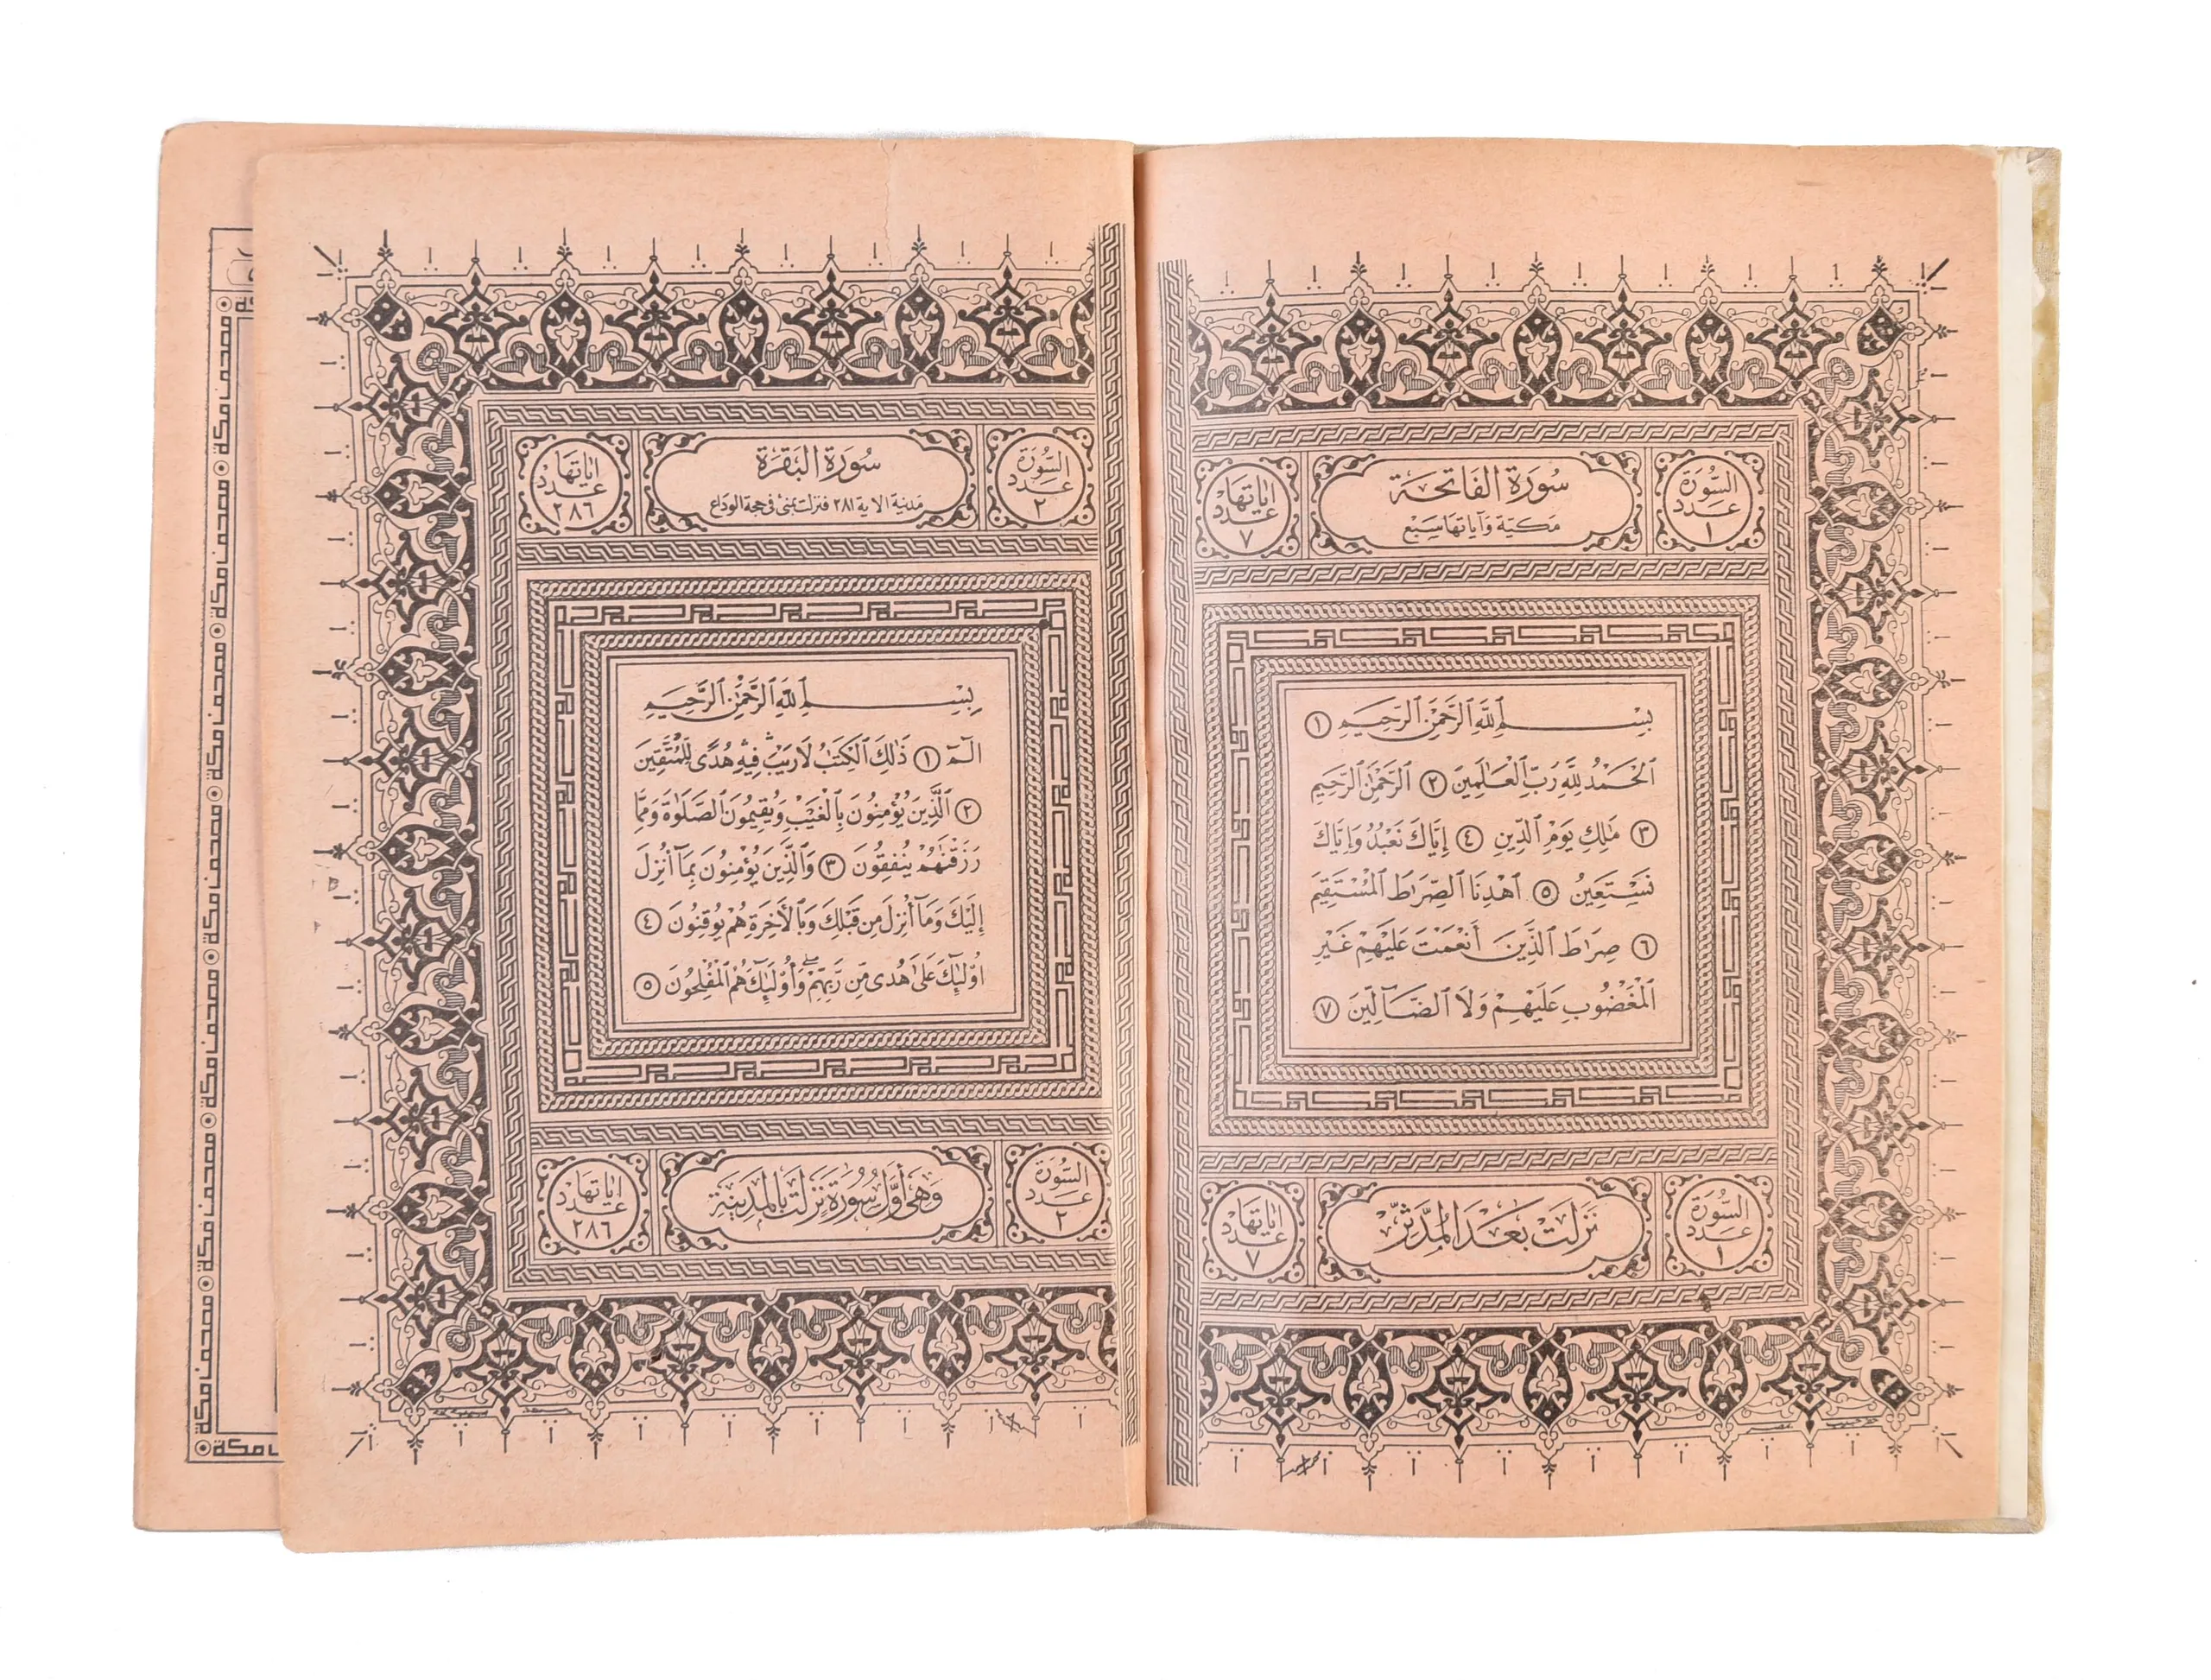 السورة
عدد
١
سورة الفاتحة
مكية وآياتها سبع
اياتها
عدد
٧
بِسْمِ ٱللَّهِ ٱلرَّحْمَٰنِ ٱلرَّحِيمِ ١
ٱلْحَمْدُ لِلَّهِ رَبِّ ٱلْعَٰلَمِينَ ٢ ٱلرَّحْمَٰنِ ٱلرَّحِيمِ
٣ مَٰلِكِ يَوْمِ ٱلدِّينِ ٤ إِيَّاكَ نَعْبُدُ وَإِيَّاكَ
نَسْتَعِينُ ٥ ٱهْدِنَا ٱلصِّرَٰطَ ٱلْمُسْتَقِيمَ
٦ صِرَٰطَ ٱلَّذِينَ أَنْعَمْتَ عَلَيْهِمْ غَيْرِ
ٱلْمَغْضُوبِ عَلَيْهِمْ وَلَا ٱلضَّآلِّينَ ٧
السورة
عدد
١
نزلت بعد المدثر
اياتها
عدد
٧
السورة
عدد
٢
سورة البقرة
مدنية الا اية ٢٨١ فنزلت بمنى في حجة الوداع
اياتها
عدد
٢٨٦
بِسْمِ ٱللَّهِ ٱلرَّحْمَٰنِ ٱلرَّحِيمِ
الٓمٓ ١ ذَٰلِكَ ٱلْكِتَٰبُ لَا رَيْبَ ۛ فِيهِ ۛ هُدًى لِّلْمُتَّقِينَ
٢ ٱلَّذِينَ يُؤْمِنُونَ بِٱلْغَيْبِ وَيُقِيمُونَ ٱلصَّلَوٰةَ وَمِمَّا
رَزَقْنَٰهُمْ يُنفِقُونَ ٣ وَٱلَّذِينَ يُؤْمِنُونَ بِمَآ أُنزِلَ
إِلَيْكَ وَمَآ أُنزِلَ مِن قَبْلِكَ وَبِٱلْأَخِرَةِ هُمْ يُوقِنُونَ ٤
أُو۟لَٰٓئِكَ عَلَىٰ هُدًى مِّن رَّبِّهِمْ ۖ وَأُو۟لَٰٓئِكَ هُمُ ٱلْمُفْلِحُونَ ٥
السورة
عدد
٢
وهي أول سورة نزلت بالمدينة
اياتها
عدد
٢٨٦
مصحف مكة
مصحف مكة
مصحف مكة
مصحف مكة
مصحف مكة
مصحف مكة
مصحف مكة